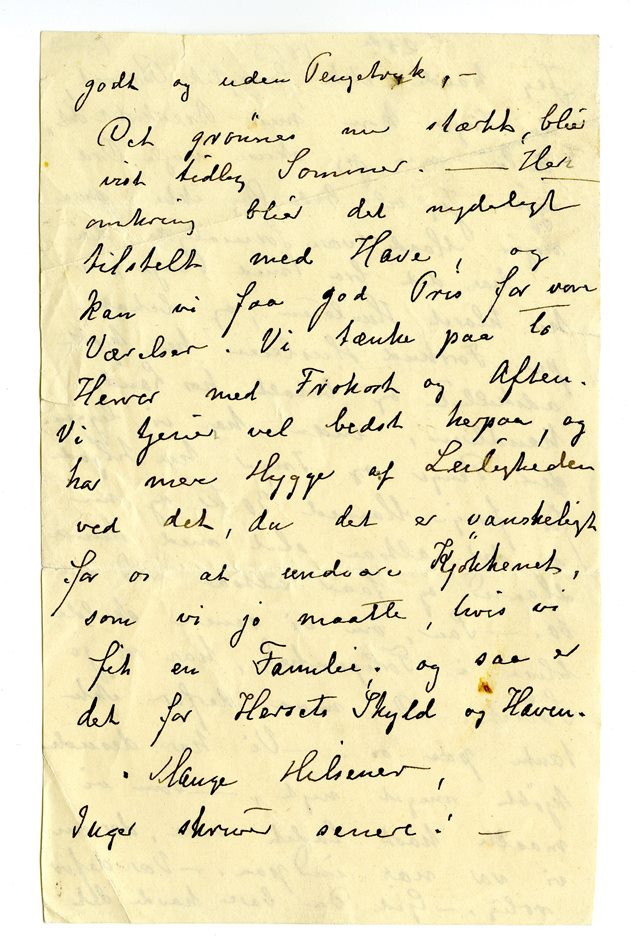 godt og uden Pengetryk, —
Det grønnes nu stærkt, blier
vist tidlig Sommer. — Her
omkring blier det nydeligt
tilstelt med Have, og
kan vi faa god Pris for vore
Værelser. Vi tænke paa to
Herrer med Frokost og Aften.
Vi tjener vel bedst herpaa, og
har mere Hygge af Leiligheden
ved det, da det er vanskeligt
for os at undvære Kjøkkenet,
som vi jo maatte, hvis vi
fik en Familie, og saa er
det for Husets Skyld og Haven.
Mange Hilsener,
Inger skriver senere! —